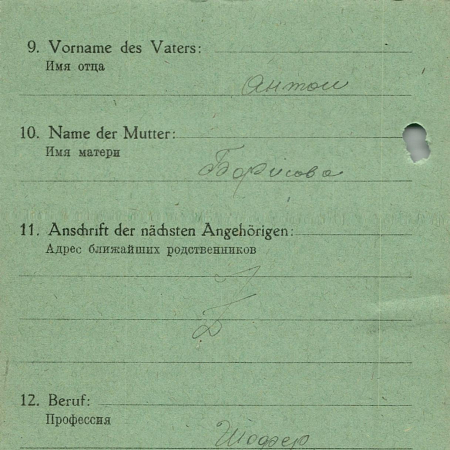 9. Vorname des Vaters:
Имя отца
Антон
10. Name der Mutter:
Имя матери
Борисова
11. Anschrift der nächsten Angehörigen:
Адрес ближайших родственников
12. Beruf:
Профессия
Шофер